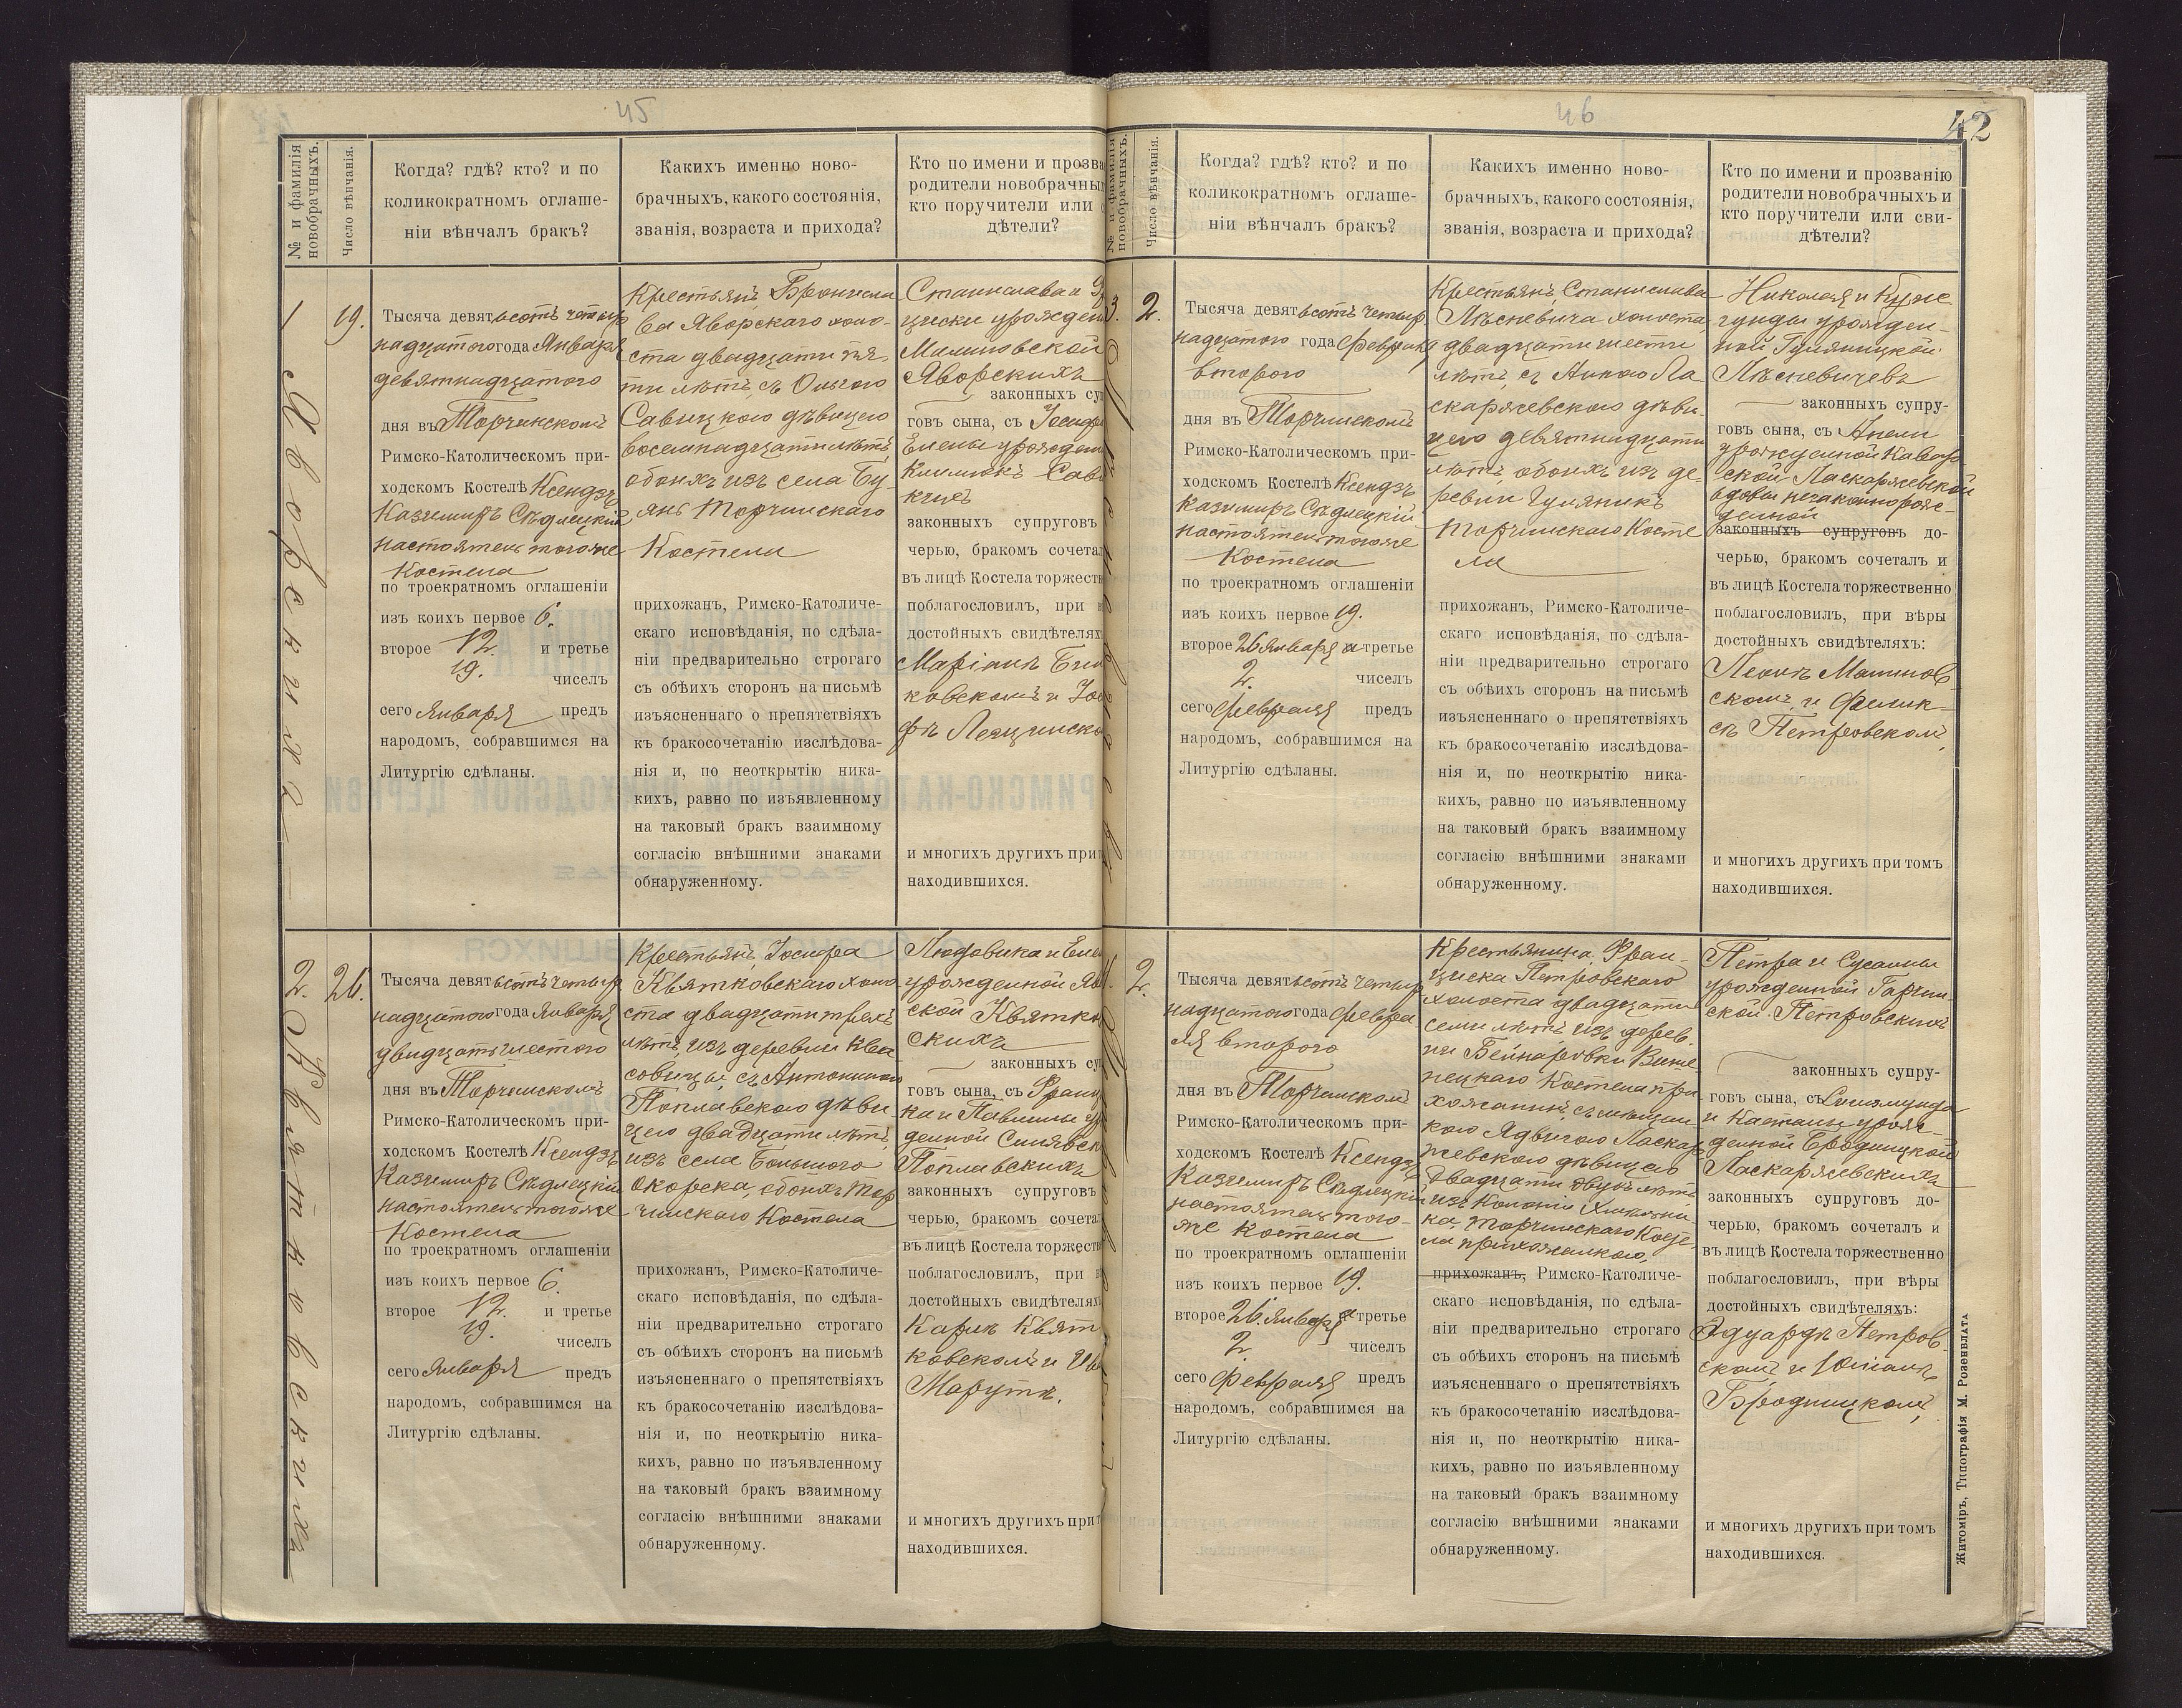 45
№ и фамилія новобрачныхъ.
Число вѣнчанія.
Когда? гдѣ? кто? и по
коликократномъ оглаше-
ніи вѣнчалъ бракъ?
Какихъ именно ново-
брачныхъ, какого состоянія,
званія, возраста и прихода?
Кто по имени и прозва
родители новобрачны
кто поручители или
дѣтели?
1
Яворскихъ
19.
Тысяча девятьсотъ четыр
надцатого года Января
девятнадцатого
дня въ Торчинскомъ
Римско-Католическомъ при-
ходскомъ Костелѣ Ксендзъ
Казимиръ Сѣдлецкій
настоятель тогоже
Костела
по троекратномъ оглашеніи
изъ коихъ первое 6.
второе 12. и третье
19. чиселъ
сего Января предъ
народомъ, собравшимся на
Литургію сдѣланы.
Крестьянъ, Бронисла
ва Яворскаго холо-
ста двадцати пя-
ти лѣтъ, съ Ольгою
Савицкою дѣвицею
восемнадцати лѣтъ,
обоихъ изъ села Бу-
янь Торчинскаго
Костела
прихожанъ, Римско-Католиче-
скаго исповѣданія, по сдѣла-
ніи предварительно строгаго
съ обѣихъ сторонъ на письмѣ
изъясненнаго о препятствіяхъ
къ бракосочетанію изслѣдова-
нія и, по неоткрытію ника-
кихъ, равно по изъявленному
на таковый бракъ взаимному
согласію внѣшними знаками
обнаруженному.
Станислава и
циски урожден
Малиновской
Яворскихъ
законныхъ су
говъ сына, съ Іосифа
Елены урожден
Климюкъ Сав
законныхъ супруговъ
черью, бракомъ сочета
въ лицѣ Костела торжест
поблагословил, при
достойныхъ свидѣтелях
Маріанъ
ковскомъ и Іос
фъ Лещинско
и многихъ другихъ при
находившихся.
2.
Квятковскихъ
26.
Тысяча девятьсотъ четыр
надцатого года Января
двадцать шестого
дня въ Торчинскомъ
Римско-Католическомъ при-
ходскомъ Костелѣ Ксендзъ
Казимиръ Сѣдлецкій
настоятель тогоже
Костела
по троекратномъ оглашеніи
изъ коихъ первое 6.
второе 12. и третье
19. чиселъ
сего Января предъ
народомъ, собравшимся на
Литургію сдѣланы.
Крестьянъ, Іосифа
Квятковскаго холо
ста двадцати трехъ
лѣтъ, изъ деревни Ква
совицы, съ Антониною
Поплавскою дѣви-
цею двадцати лѣтъ,
изъ села Большого
Окорска, обоихъ Тор
чинскаго Костела
прихожанъ, Римско-Католиче-
скаго исповѣданія, по сдѣла-
ніи предварительно строгаго
съ обѣихъ сторонъ на письмѣ
изъясненнаго о препятствіяхъ
къ бракосочетанію изслѣдова-
нія и, по неоткрытію ника-
кихъ, равно по изъявленному
на таковый бракъ взаимному
согласію внѣшними знаками
обнаруженному.
Людовика и Еле
урожденной
ской Квятко
скихъ
законныхъ су
говъ сына, съ Франц
ка и Павлины
денной Синявск
Поплавскихъ
законныхъ супруговъ
черью, бракомъ сочета
въ лицѣ Костела торжест
поблагословилъ, при
достойныхъ свидѣтелях
Карлъ Квят
ковскомъ и
Марутъ.
и многихъ другихъ при т
находившихся.
46
42
№ и фамилія новобрачныхъ.
Число вѣнчанія.
Когда? гдѣ? кто? и по
коликократномъ оглаше-
ніи вѣнчалъ бракъ?
Какихъ именно ново-
брачныхъ, какого состоянія,
званія, возраста и прихода?
Кто по имени и прозванію
родители новобрачныхъ и
кто поручители или сви-
дѣтели?
3.
2.
Тысяча девятьсотъ четыр
надцатого года Февраля
второго
дня въ Торчинскомъ
Римско-Католическомъ при-
ходскомъ Костелѣ Ксендзъ
Казимиръ Сѣдлецкій
настоятель тогоже
Костела
по троекратномъ оглашеніи
изъ коихъ первое 19.
второе 26 Января и третье
2. чиселъ
сего Февраля предъ
народомъ, собравшимся на
Литургію сдѣланы.
Крестьянъ, Станислава
Лѣсневича холоста,
двадцати шести
лѣтъ, съ Анною Ла-
скаржевскою дѣви
цею девятнадцати
лѣтъ, обоихъ изъ де-
ревни Гуляникъ
Торчинскаго Косте
ла
прихожанъ, Римско-Католиче-
скаго исповѣданія, по сдѣла-
ніи предварительно строгаго
съ обѣихъ сторонъ на письмѣ
изъясненнаго о препятствіяхъ
къ бракосочетанію изслѣдова-
нія и, по неоткрытію ника-
кихъ, равно по изъявленному
на таковый бракъ взаимному
согласію внѣшними знаками
обнаруженному.
Николая и Куне
гунды урожден-
ной Гуляницкой
Лѣсневичевъ
законныхъ супру-
говъ сына, съ Анели
урожденной
ской Ласкаржевской
вдовы незаконнорож-
денной
законныхъ супруговъ до-
черью, бракомъ сочеталъ и
въ лицѣ Костела торжественно
поблагословилъ, при вѣры
достойныхъ свидѣтеляхъ:
Леонъ Малинов-
скомъ, и Феликъ-
съ Петровскомъ,
и многихъ другихъ при томъ
находившихся.
2.
Тысяча девятьсотъ четыр
надцатого года Февра-
ля второго
дня въ Торчинскомъ
Римско-Католическомъ при-
ходскомъ Костелѣ Ксендзъ
Казимиръ Сѣдлецкій
настоятель того-
же Костела
по троекратномъ оглашеніи
изъ коихъ первое 19.
второе 26. Января и третье
2. чиселъ
сего Февраля предъ
народомъ, собравшимся на
Литургію сдѣланы.
Крестьянина, Фран-
циска Петровскаго
холоста двадцати
семи лѣтъ изъ дерев-
ни Бейнаровки
Костела при
хожанинъ, съ мѣщан
кою Ядвигою Ласкар
жевскою дѣвицею
двадцати двухъ лѣтъ
изъ Колоніи
ка, Торчинскаго Косте
ла прихожанкою,
прихожанъ, Римско-Католиче-
скаго исповѣданія, по сдѣла-
ніи предварительно строгаго
съ обѣихъ сторонъ на письмѣ
изъясненнаго о препятствіяхъ
къ бракосочетанію изслѣдова-
нія и, по неоткрытію ника-
кихъ, равно по изъявленному
на таковый бракъ взаимному
согласію внѣшними знаками
обнаруженному.
Петра и Сусанны
урожденной Гарчин-
ской Петровскихъ
законныхъ супру-
говъ сына, съ
и урож-
денной Бродницкой
Ласкаржевскихъ
законныхъ супруговъ до-
черью, бракомъ сочеталъ и
въ лицѣ Костела торжественно
поблагословилъ, при вѣры
достойныхъ свидѣтеляхъ:
Эдуардъ Петров
скомъ и Юліанъ
Бродницкомъ,
и многихъ другихъ при томъ
находившихся.
Житоміръ, Типографія М. Розенблата